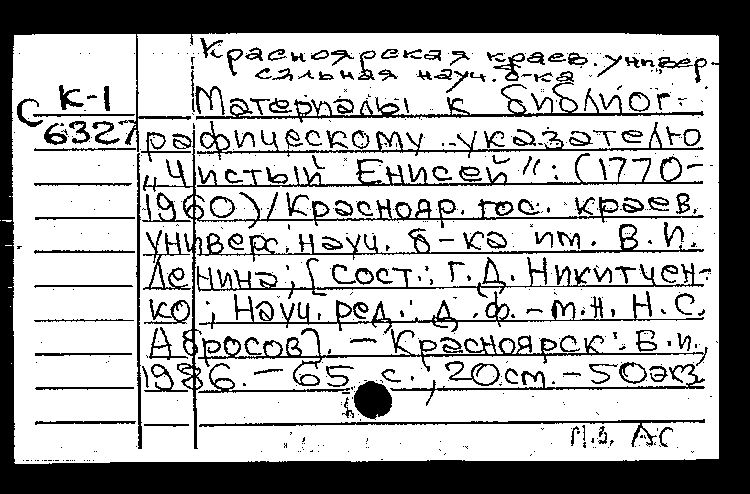 Красноярская краев. универ-
сальная науч. б-ка
С К-1
6327
Материалы к библиог-
рафическому указателю
„Чистый Енисей": (1770-
1960)/Краснояр. гос. краев.
универс. науч. б-ка им. В.И.
Ленина; [сост.: Г.Д. Никитчен-
ко; Науч. ред.: д.ф.-м.н. Н.С.
Абросов]. — Красноярск: Б.и.,
1986. — 65 с.; 20см. — 50экз
М.З. АС